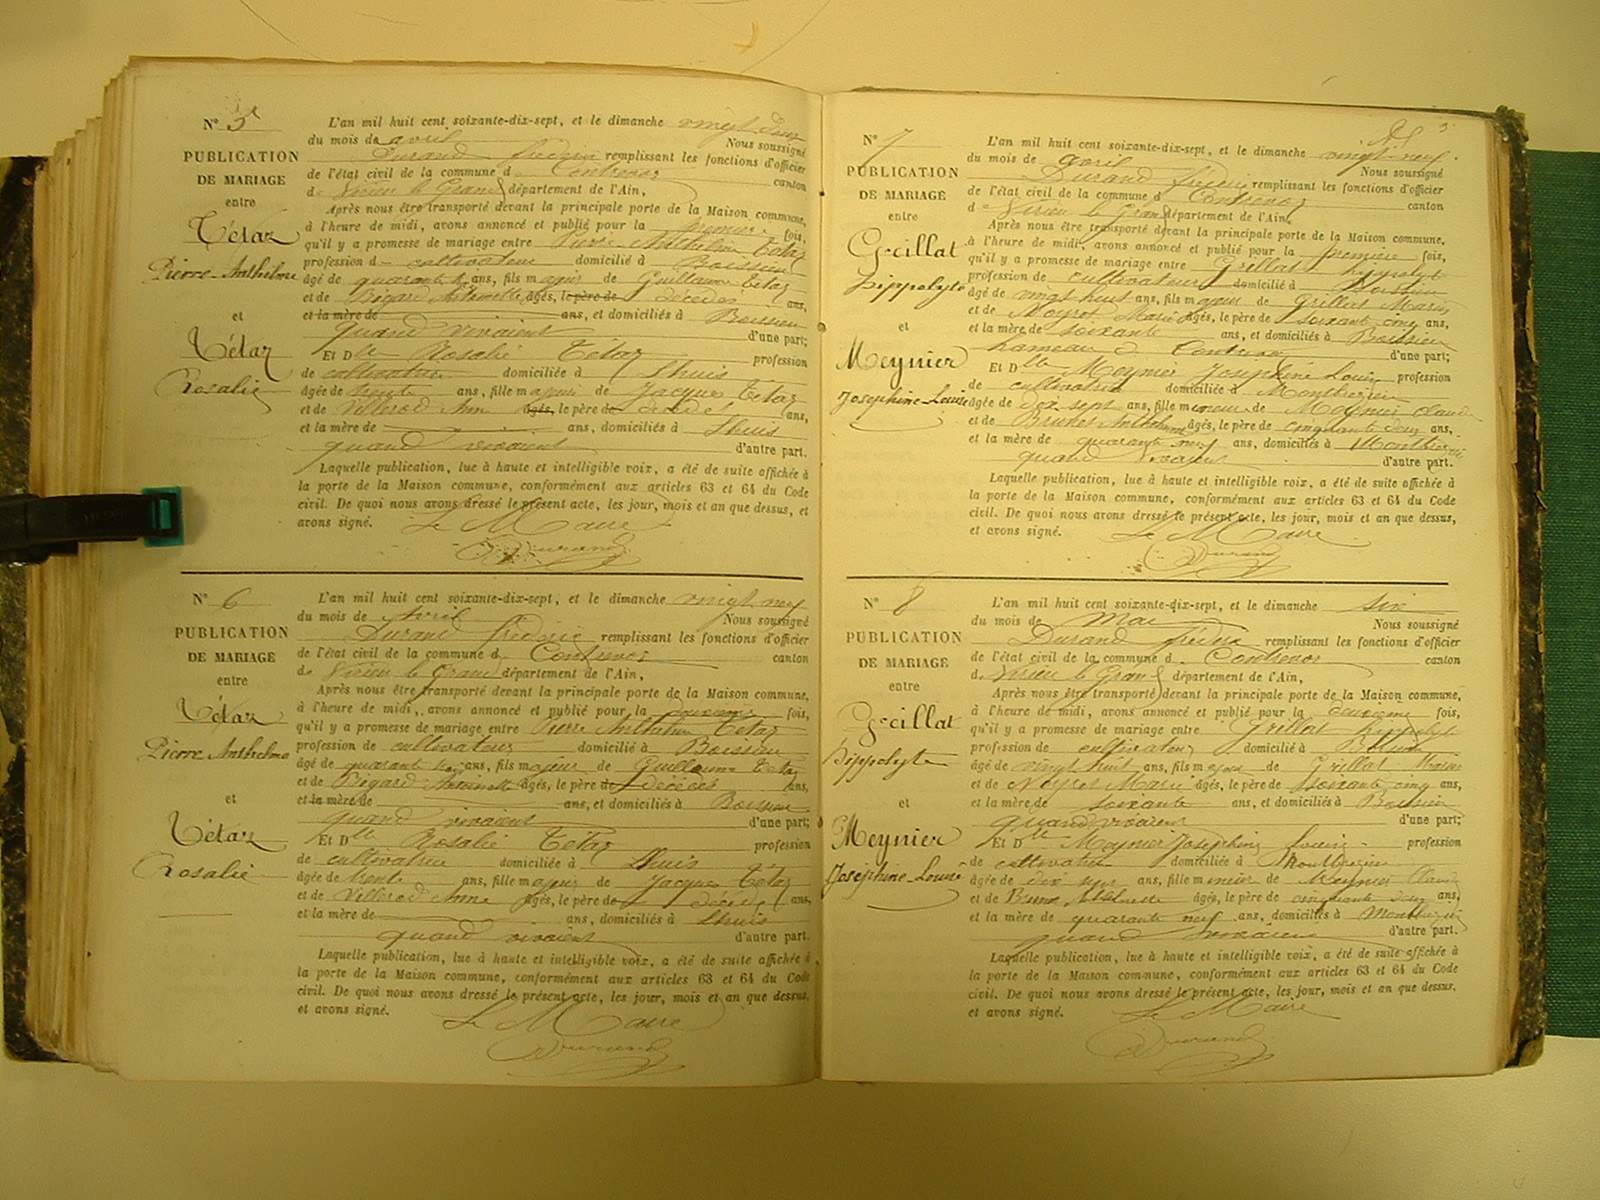 N° 5
PUBLICATION
DE MARIAGE
entre
Tétaz
Pierre-Anthelme
et
Tétaz
Rosalie
L'an mil huit cent soixante-dix-sept, et le dimanche vingt deux
du mois de avril Nous soussigné
Durand frédéric remplissant les fonctions d'officier
de l'état civil de la commune d Contrevoz canton
de Virieu le Grand département de l'Ain,
Après nous être transporté devant la principale porte de la Maison commune,
à l'heure de midi, avons annoncé et publié pour la première fois,
qu'il y a promesse de mariage entre Pierre Anthelme Tétaz
profession d cultivateur domicilié à Boissieu
âgé de quarante ans, fils majeur de Guillaume Tétaz
et de Bigard Antoinette âgés, le père de décédés ans,
et la mère de ans, et domiciliés à Boissieu
quand vivaient d'une part;
Et Dlle Rosalie Tétaz profession
de cultivatrice domiciliée à Lhuis
âgée de trente ans, fille majeure de Jacques Tétaz
et de Villerod Anne âgés, le père de décédés ans,
et la mère de ans, domiciliés à Lhuis
quand vivaient d'autre part.
Laquelle publication, lue à haute et intelligible voix, a été de suite affichée à
la porte de la Maison commune, conformément aux articles 63 et 64 du Code
civil. De quoi nous avons dressé le présent acte, les jour, mois et an que dessus, et
avons signé. Le Maire
Durand
N° 6
PUBLICATION
DE MARIAGE
entre
Tétaz
Pierre Anthelme
et
Tétaz
Rosalie
L'an mil huit cent soixante-dix-sept, et le dimanche vingt neuf
du mois de Avril Nous soussigné
Durand frédéric remplissant les fonctions d'officier
de l'état civil de la commune d Contrevoz canton
de Virieu le Grand département de l'Ain,
Après nous être transporté devant la principale porte de la Maison commune,
à l'heure de midi, avons annoncé et publié pour la deuxième fois,
qu'il y a promesse de mariage entre Pierre Anthelme Tétaz
profession de cultivateur domicilié à Boissieu
âgé de quarante ans, fils majeur de Guillaume Tétaz
et de Bigard Antoinette âgés, le père de décédés ans,
et la mère de ans, et domiciliés à Boissieu
quand vivaient d'une part;
Et Dlle Rosalie Tétaz profession
de cultivatrice domiciliée à Lhuis
âgée de trente ans, fille majeure de Jacques Tétaz
et de Villerod Anne âgés, le père de décédés ans,
et la mère de ans, domiciliés à Lhuis
quand vivaient d'autre part.
Laquelle publication, lue à haute et intelligible voix, a été de suite affichée à
la porte de la Maison commune, conformément aux articles 63 et 64 du Code
civil. De quoi nous avons dressé le présent acte, les jour, mois et an que dessus,
et avons signé. Le Maire
Durand
N° 7
PUBLICATION
DE MARIAGE
entre
Grillat
hippolyte
et
Meynier
Joséphine-Louise
L'an mil huit cent soixante-dix-sept, et le dimanche vingt-neuf
du mois de avril Nous soussigné
Durand frédéric remplissant les fonctions d'officier
de l'état civil de la commune d Contrevoz canton
d Virieu le Grand département de l'Ain,
Après nous être transporté devant la principale porte de la Maison commune,
à l'heure de midi, avons annoncé et publié pour la première fois,
qu'il y a promesse de mariage entre Grillat hippolyte
profession de cultivateur domicilié à Boissieu
âgé de vingt huit ans, fils majeur de Grillat Marin
et de Noyret Marie âgés, le père de soixante cinq ans,
et la mère de soixante ans, et domiciliés à Boissieu
hameau de Contrevoz d'une part;
Et Dlle Meynier Joséphine Louise profession
de cultivatrice domiciliée à
âgée de dix sept ans, fille mineure de Meynier Claude
et de Brunet âgés, le père de cinquante deux ans,
et la mère de quarante neuf ans, domiciliés à
quand vivaient d'autre part.
Laquelle publication, lue à haute et intelligible voix, a été de suite affichée à
la porte de la Maison commune, conformément aux articles 63 et 64 du Code
civil. De quoi nous avons dressé le présent acte, les jour, mois et an que dessus,
et avons signé. Le Maire
Durand
N° 8
PUBLICATION
DE MARIAGE
entre
Grillat
hippolyte
et
Meynier
Joséphine-Louise
L'an mil huit cent soixante-dix-sept, et le dimanche six
du mois de Mai Nous soussigné
Durand frédéric remplissant les fonctions d'officier
de l'état civil de la commune d Contrevoz canton
d Virieu le Grand département de l'Ain,
Après nous être transporté devant la principale porte de la Maison commune,
à l'heure de midi, avons annoncé et publié pour la deuxième fois,
qu'il y a promesse de mariage entre Grillat hippolyte
profession de cultivateur domicilié à Boissieu
âgé de vingt huit ans, fils majeur de Grillat Marin
et de Noyret Marie âgés, le père de soixante cinq ans,
et la mère de soixante ans, et domiciliés à Boissieu
quand vivaient d'une part;
Et Dlle Meynier Joséphine Louise profession
de cultivatrice domiciliée à
âgée de dix sept ans, fille mineure de Meynier Claude
et de âgés, le père de cinquante deux ans,
et la mère de quarante neuf ans, domiciliés à
quand vivaient d'autre part.
Laquelle publication, lue à haute et intelligible voix, a été de suite affichée à
la porte de la Maison commune, conformément aux articles 63 et 64 du Code
civil. De quoi nous avons dressé le présent acte, les jour, mois et an que dessus.
et avons signé. Le Maire
Durand